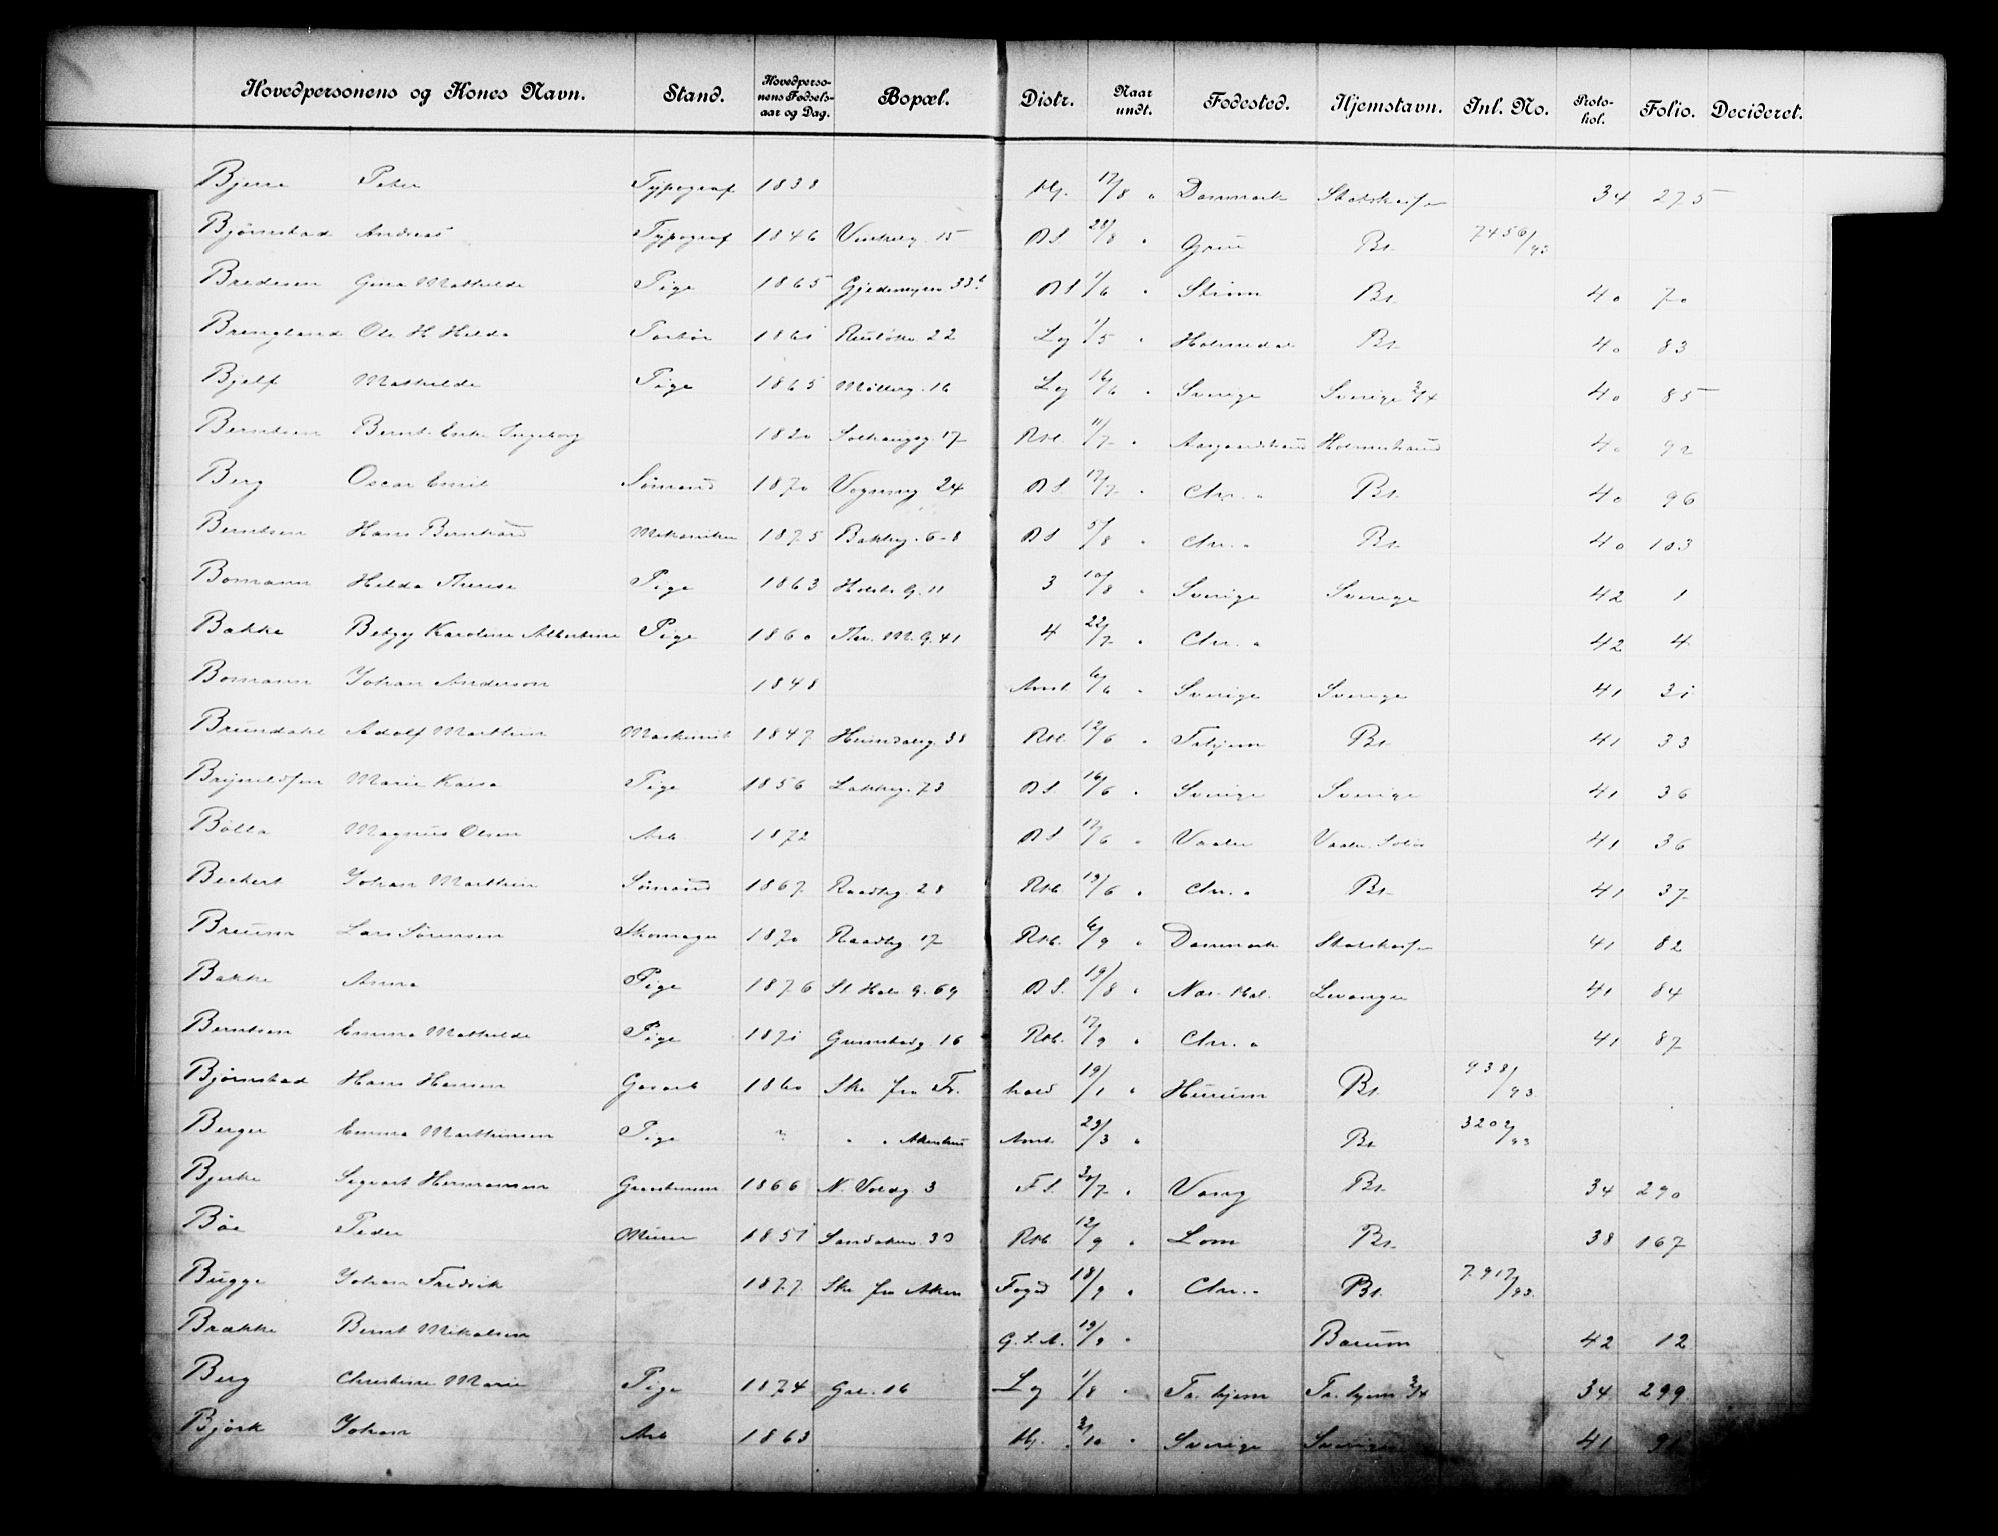 Hovedpersonens og Kones Navn. Stand. Hovedpersonens Fødselsaar og Dag. Bopæl. Distr. Naar undt. Fødested. Hjemstavn. Inl. No. Protokol. Folio. Decideret.
Bjerre Peter Typograf 1838 17/8 " Danmark 34 275
Bjørnstad Andreas Typograf 1846 15 BS 28/8 " Grue Bt. 7456/93
Bredesen Gina Mathilde Pige 1865 BS 1/6 " Strøm Bt. 40 70
Brengland Ole H Hilda 1861 Ruseløkv 22 Lg 1/5 " Holmedal Bt. 40 83
Bjelf Mathilde Pige 1865 Møllerg. 16 Lg 16/6 " Sverige Sverige 40 85
Berntsen Bernt. Enke Ingeborg 1820 17 Rst. 11/7 " Aasgaardstrand Holmestrand 40 92
Berg Oscar Emil Sømand 1870 24 BS 17/7 " Chr. a Bt. 40 96
Berntsen Hans Bernhard Mekaniker 1875 Bakkeg. 6-8 BS 5/8 " Chr. a Bt. 40 103
Bomann Hilda Therese Pige 1863 Holsts G. 11 3 10/8 " Sverige Sverige 42 1
Bakke Betzy Karoline Albertine Pige 1860 Thv. M. G. 41 4 22/7 " Chr. a 42 4
Bomann Johan Anderson 1848 Amt. 6/6 " Sverige Sverige 41 31
Brundahl Adolf Marthin Maskinist 1847 Heimdalsg. 38 Rst. 12/6 " Trhjem Bt. 41 33
Brynildsen Marie Kaisa Pige 1856 Lakkeg. 73 BS 16/6 " Sverige Sverige 41 36
Bølla Magnus Olsen Arb 1872 BS 17/6 " Vaaler Vaaler. Solør 41 36
Beckert Johan Marthin Sømand 1867 Raadhg. 28 Rst. 19/6 " Chr. a Bt. 41 37
Breum Lars Sørensen Skomager 1870 Raadhg 17 Rst. 6/9 " Danmark 41 82
Bakke Anna Pige 1876 St. Hal. G. 69 BS. 19/8 " Levanger 41 84
Berntsen Emma Mathilde Pige 1871 Grønlandsg 16 Rst. 17/9 " Chr. a 41 87
Bjørnstad Hans Hansen Gaard 1860 Skr fra Fr. hald 19/1 " Hurum Bt. 938/93
Berger Emma Marthinsen Pige ? " " Akershus Amt 23/3 " Bt. 3202/93
Bjerke Sigvart Hermansen 1866 N. Voldg. 3 F S. 20/7 " Vang Bt. 34 290
Bøe Peder Murer 1851 Sandakerv. 33 Rst. 12/9 " Lom Bt. 38 167
Bugge Johan Fredrik 1877 Skr fra Aker Fogd 18/9 " Chr. a Bt. 7917/93
Brække Bernt Mikalsen G.S.A. 19/9 " Bærum 42 12
Berg Christine Marie Pige 1874 16 Lg 1/8 " Tr. hjem Tr. hjem 34 299
Bjørk Johan Arb 1863 " Sverige Sverige 41 91